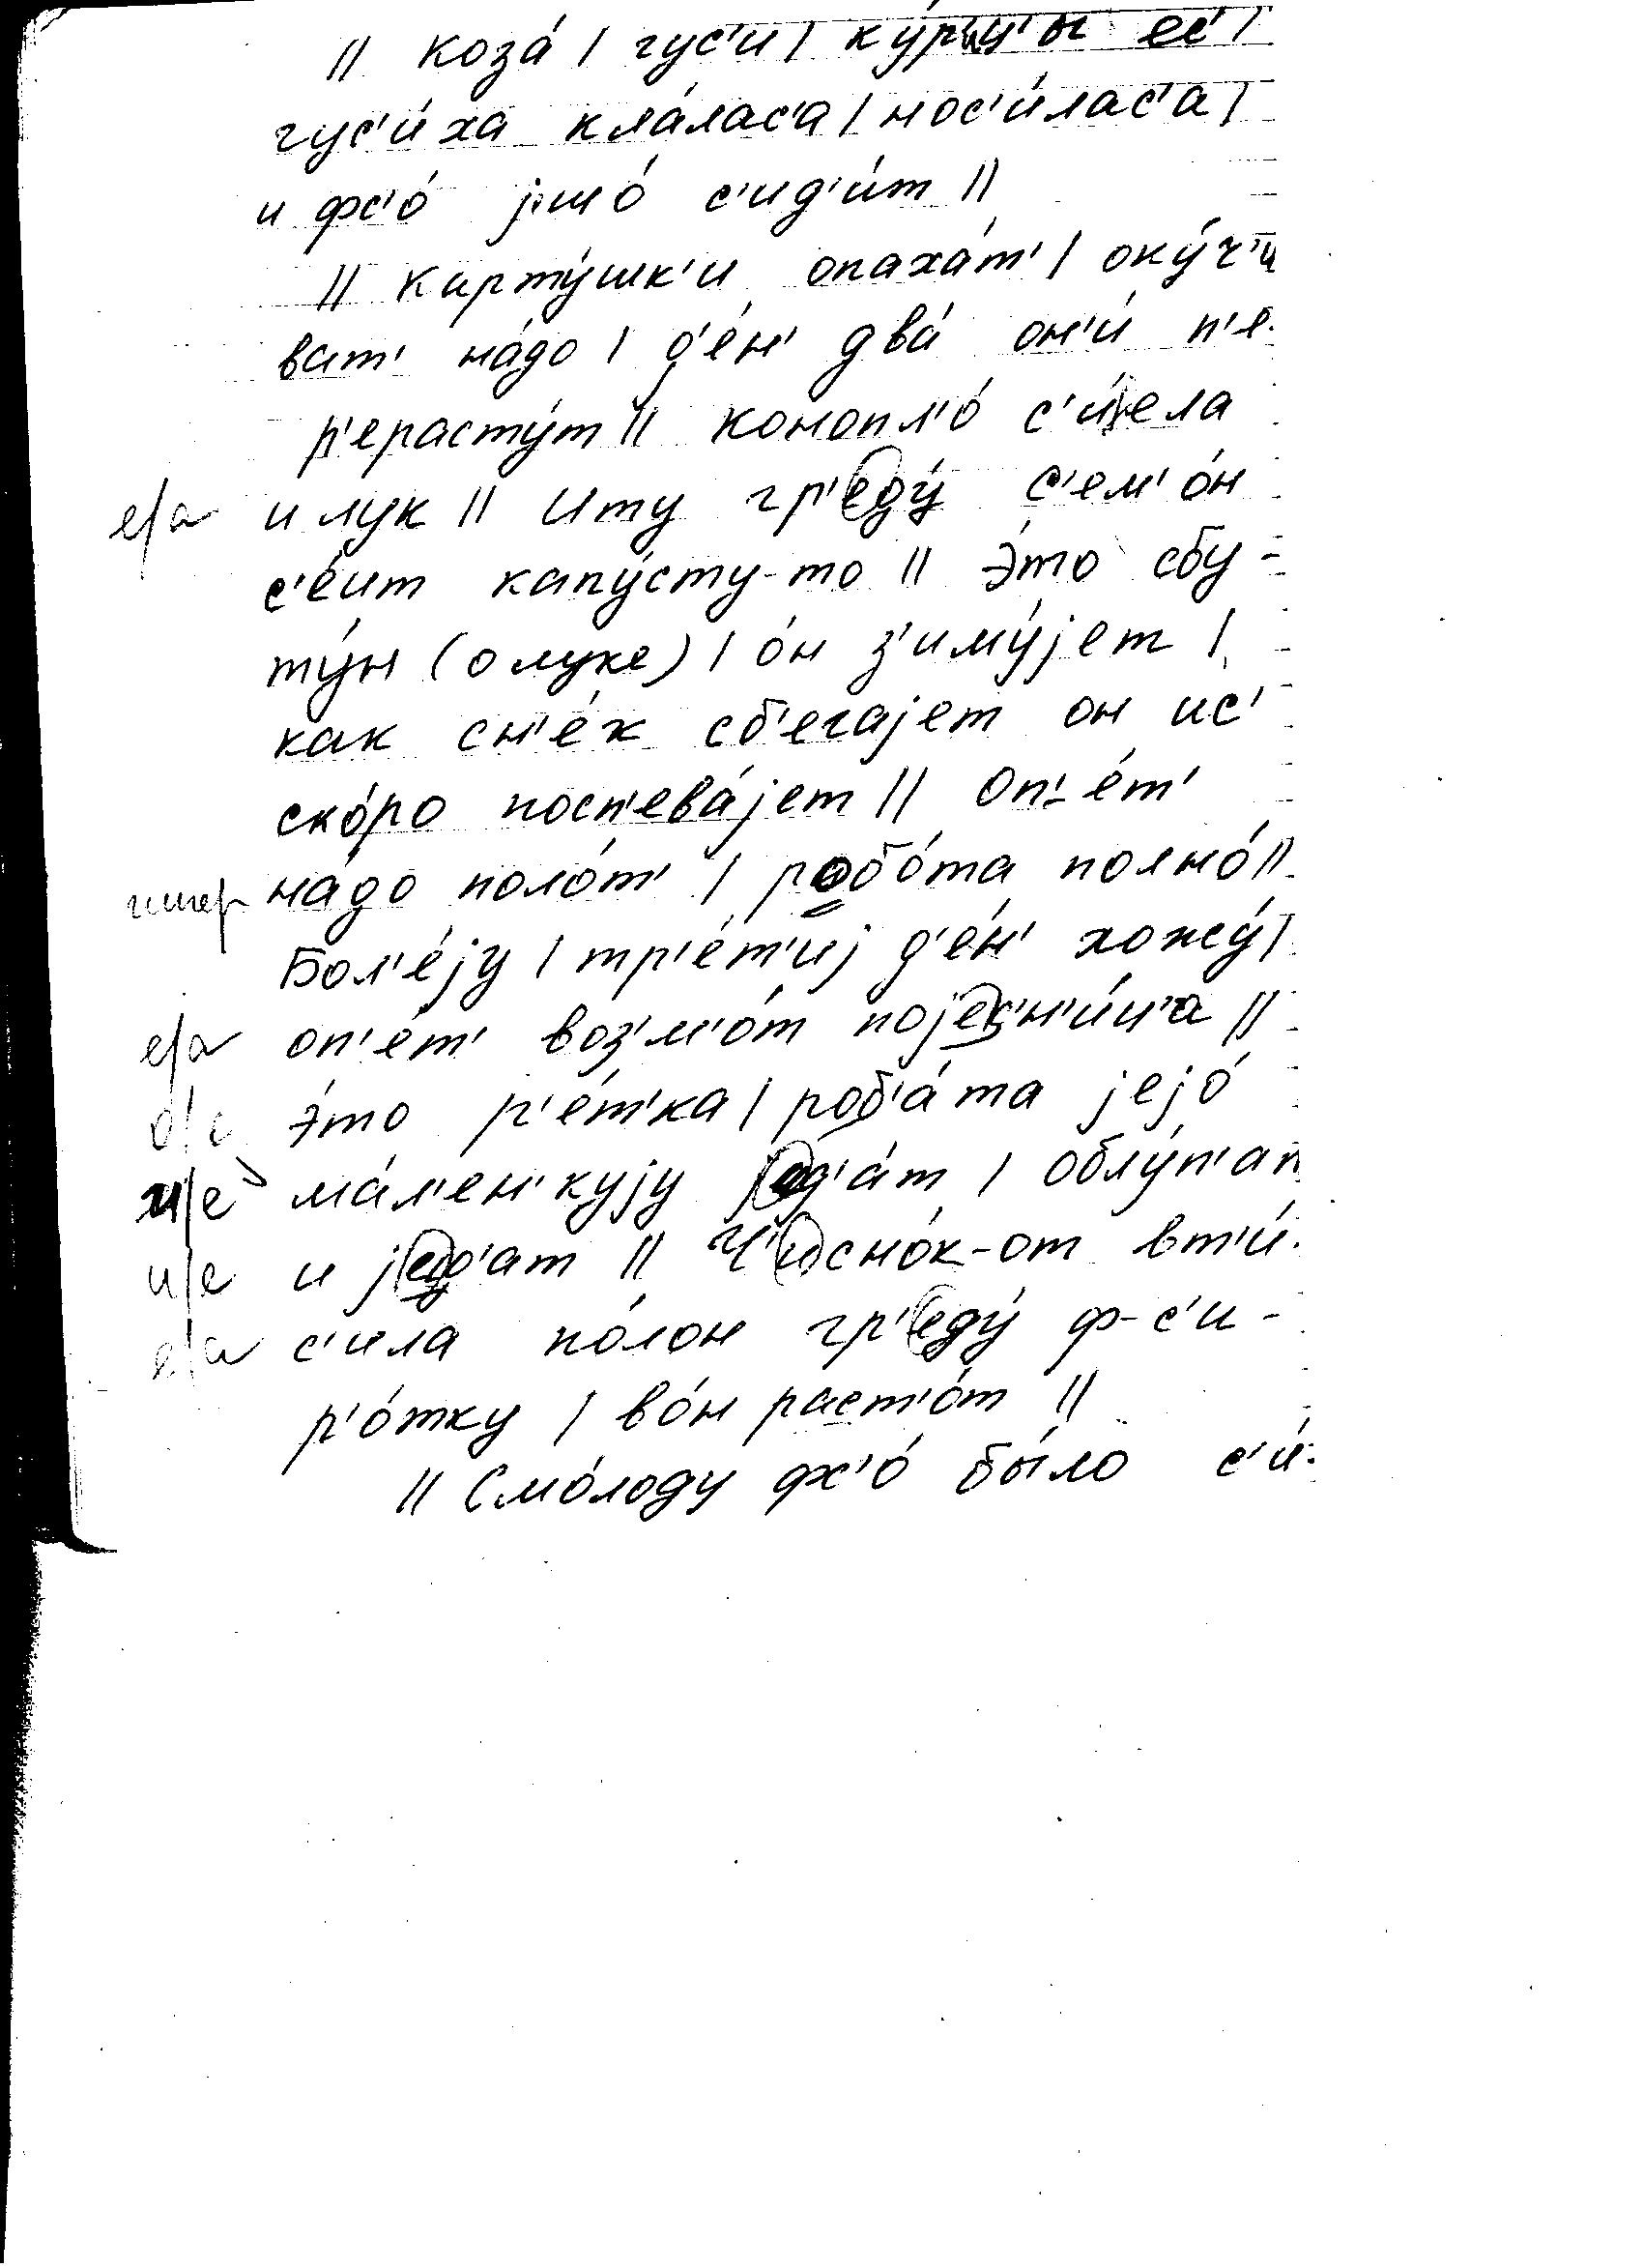 || коза́ | гус'и | ку́рицы ес' |
гус'и́ха кла́лас'а | нос'и́лас'а |
и фс'о́ jишо́ с'ид'и́т ||
|| карту́шк'и опаха́т' | оку́ч'и
ват' на́до | д'е́н' два́ он'и́ п'е-
р'ерасту́т || конопл'о́ с'и́ела
е/а и лук || иту гр'еду́ с'ем'о́н
с'е́ит капу́сту-то || э́то сбу-
ту́н (о луке) | о́н з'иму́jет |
как сн'е́х сб'егаjет он ис'
ско́ро посп'ева́jет || Оп'е́т'
гипер на́до поло́т' | робо́та полно́ ||
Бол'е́jу | тр'е́т'иj д'е́н' хожу́ |
е/а оп'е́т' воз'м'о́т поjес'н'и́ц'а ||
э́то р'е́т'ка | роб'а́та jеjо́
и/е ма́л'ен'куjу jед'а́т | облу́п'ат
и/е и jед'ат || Ч'исно́к-от вт'и́-
е/а с'ила по́лон гр'еду́ ф-с'и-
р'о́тку | во́н раст'о́т ||
|| Смо́лоду фс'о́ бы́ло с'и́-